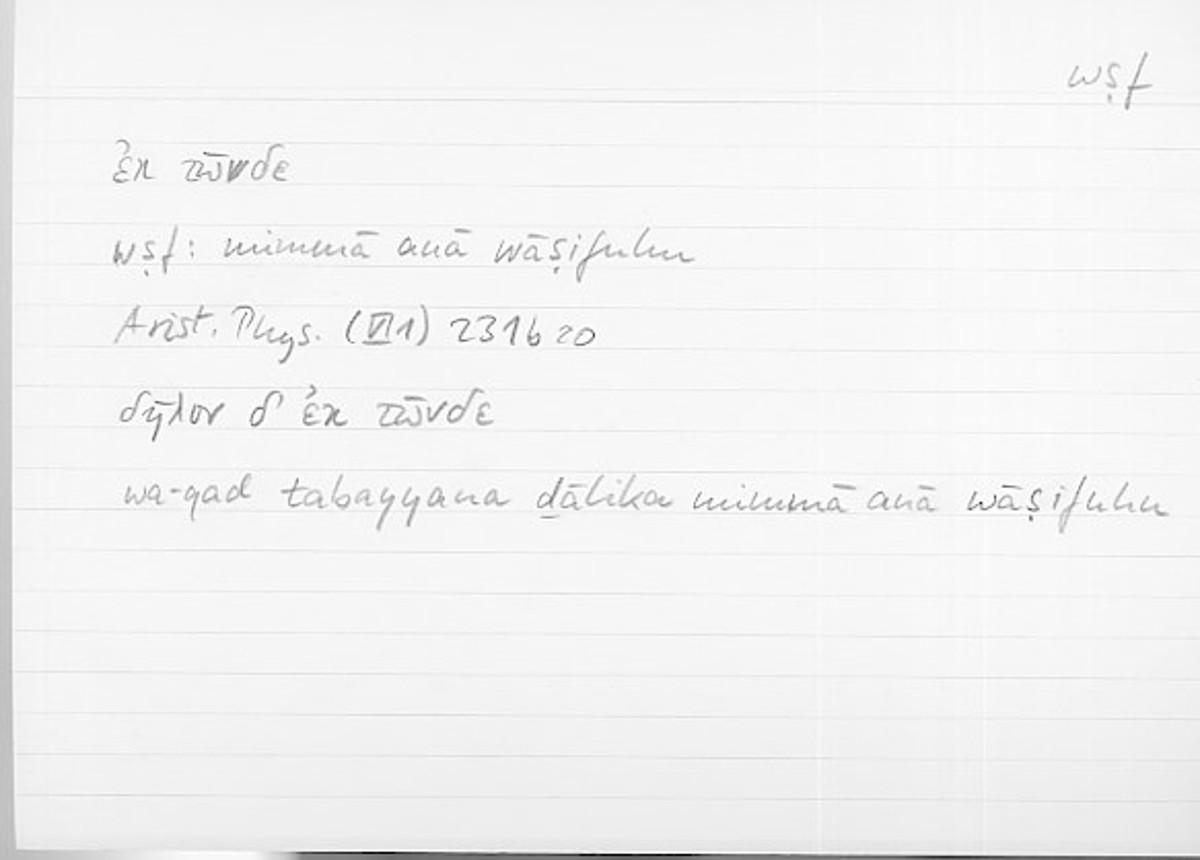 wṣf
ἐκ τῶνδε
wṣf: mimmā anā wāṣifuhu
Arist. Phys. (VI 1) 231b20
δῆλον δ' ἐκ τῶνδε
wa-qad tabayyana ḏālika mimmā anā wāṣifuhu